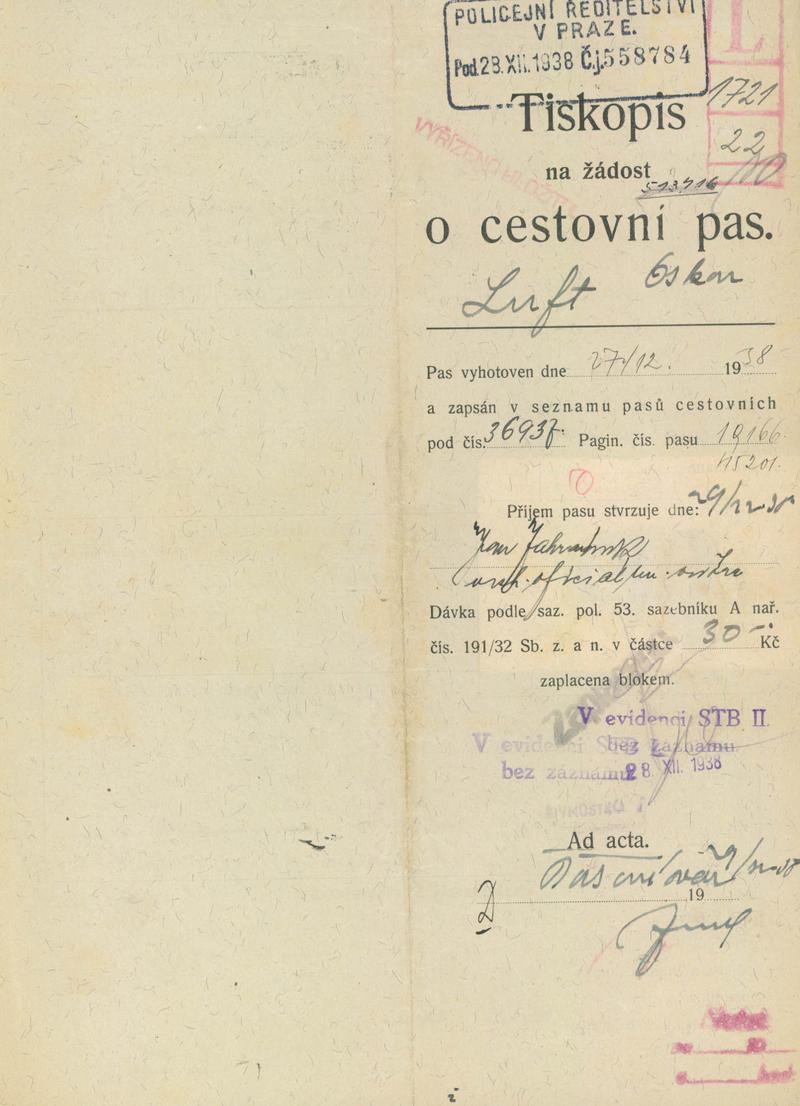 POLICEJNÍ ŘEDITELSTVÍ
V PRAZE.
Pod. 28. XII. 1938 Č.j. 558784
1721
22
Tiskopis
na žádost
o cestovní pas.
Luft Oskar
Pas vyhotoven dne 27/12. 1938
a zapsán v seznamu pasů cestovních
pod čís. 36937. Pagin. čís. pasu 19166
45201.
Příjem pasu stvrzuje dne: 29/12-38
Dávka podle saz. pol. 53. sazebníku A nař.
čís. 191/32 Sb. z. a n. v částce 30 Kč
zaplacena blokem.
V evidenci STB II.
bez záznamu
V evidenci STB
bez záznamu
28. XII. 1938
Ad acta.
29/12-38
19